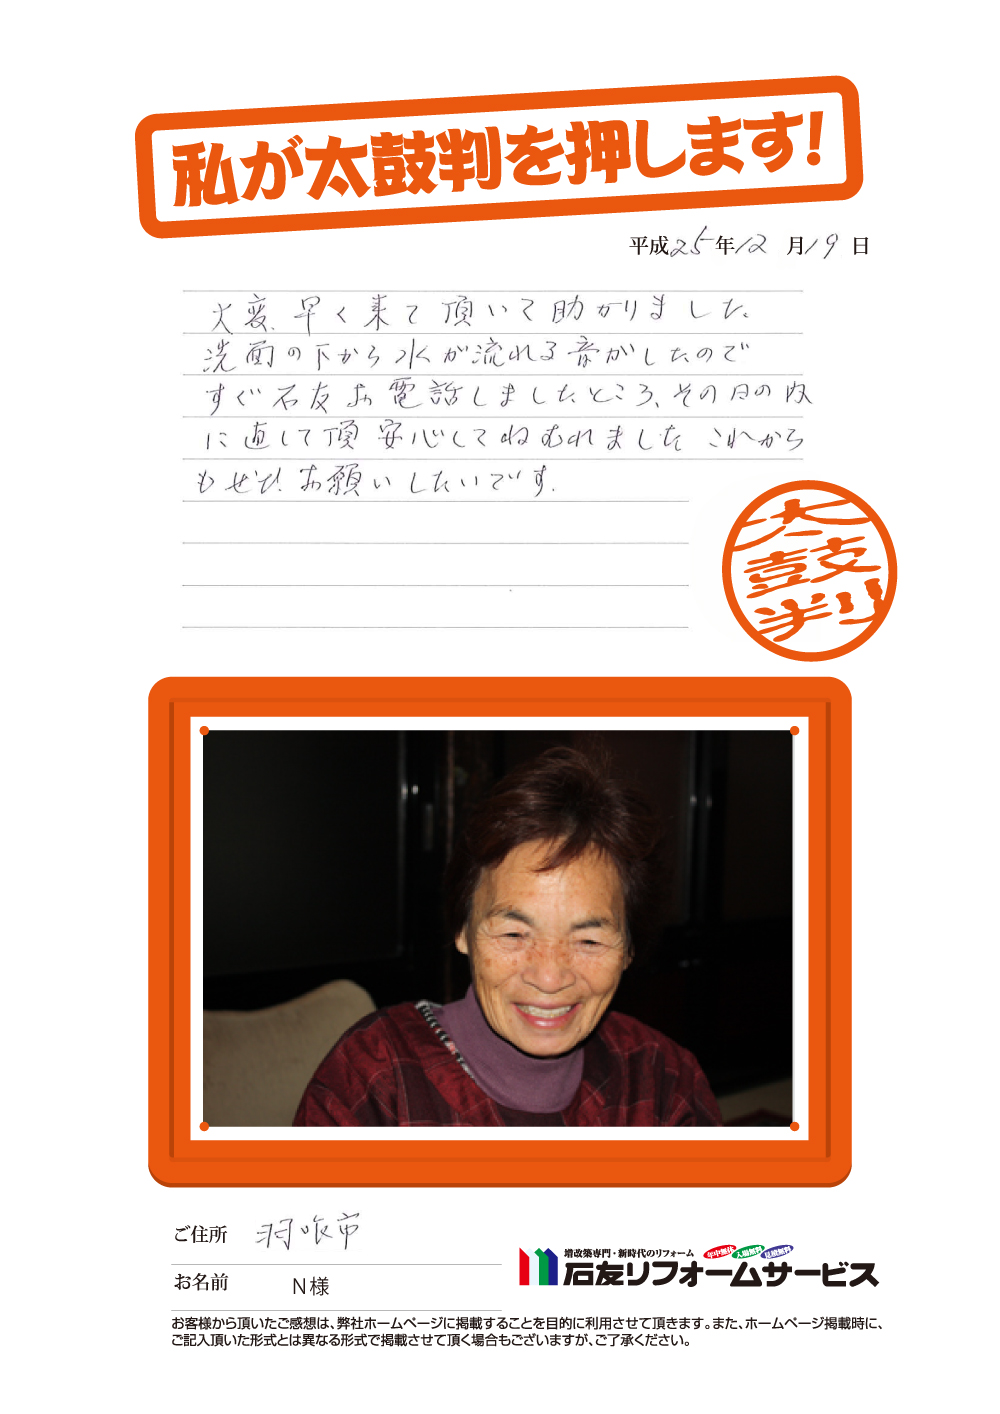 私が太鼓判を押します!
平成25年12月19日
大変早く来て頂いて助かりました。
洗面の下から水が流れる音がしたので
すぐ石友お電話しましたところ、その日の内
に直して頂安心してねむれました これから
もぜひお願いしたいです.
太鼓判
ご住所 羽咋市
増改築専門・新時代のリフォーム 年中無休 入場無料 見積無料
石友リフォームサービス
お名前 N様
お客様から頂いたご感想は、弊社ホームページに掲載することを目的に利用させて頂きます。また、ホームページ掲載時に、
ご記入頂いた形式とは異なる形式で掲載させて頂く場合もございますが、ご了承ください。